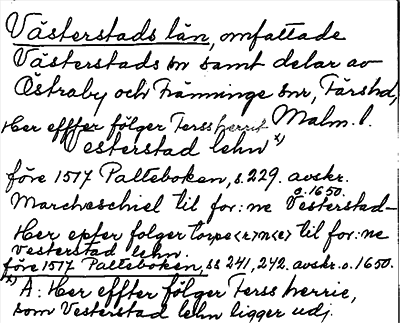 Västerstads län, omfattade
Västerstads sn samt delar av
Östraby och Fränninge snr, Färshd,
Malm. l.
Her effter fölger Ferssherrit
Vesterstad lehn x)
före 1517 Palteboken, s. 229. avskr.
o. 1650.
Marcheschiel til for:ne Vesterstad-
Her epter folger torpe<r>n<e> til for:ne
vesterstad lehn.
före 1517 Palteboken, ss 241, 242. avskr. o. 1650.
x) A: Her effter fölger Ferss herrie,
som Vesterstad lehn ligger udj.